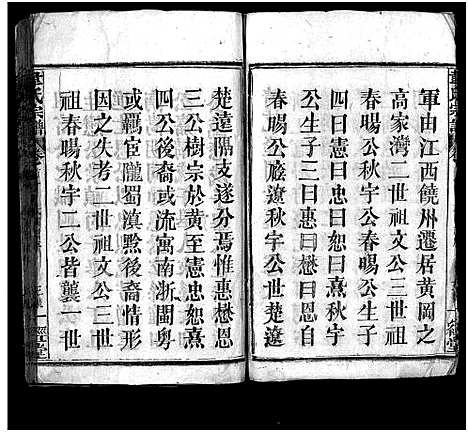 軍由江西饒州遷居黃岡之
高家灣二世祖文公三世祖
春暘公秋宇公春暘公生子
四曰憲曰忠曰恕曰熹秋宇
公生子三曰惠曰懋曰恩自
春暘公蔭遼秋宇公世楚遼
楚遼隔支遂分焉惟惠懋恩
三公樹宗於黃至憲忠恕熹
四公後裔或流寓南浙閩粵
或羈宦隴蜀滇黔後裔情形
因之失考二世祖文公三世
祖春暘秋宇二公皆襲一世
氏宗譜